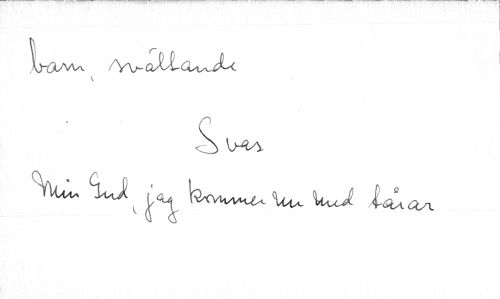 barn, svältande
Svar
Min Gud, jag kommer nu med tårar